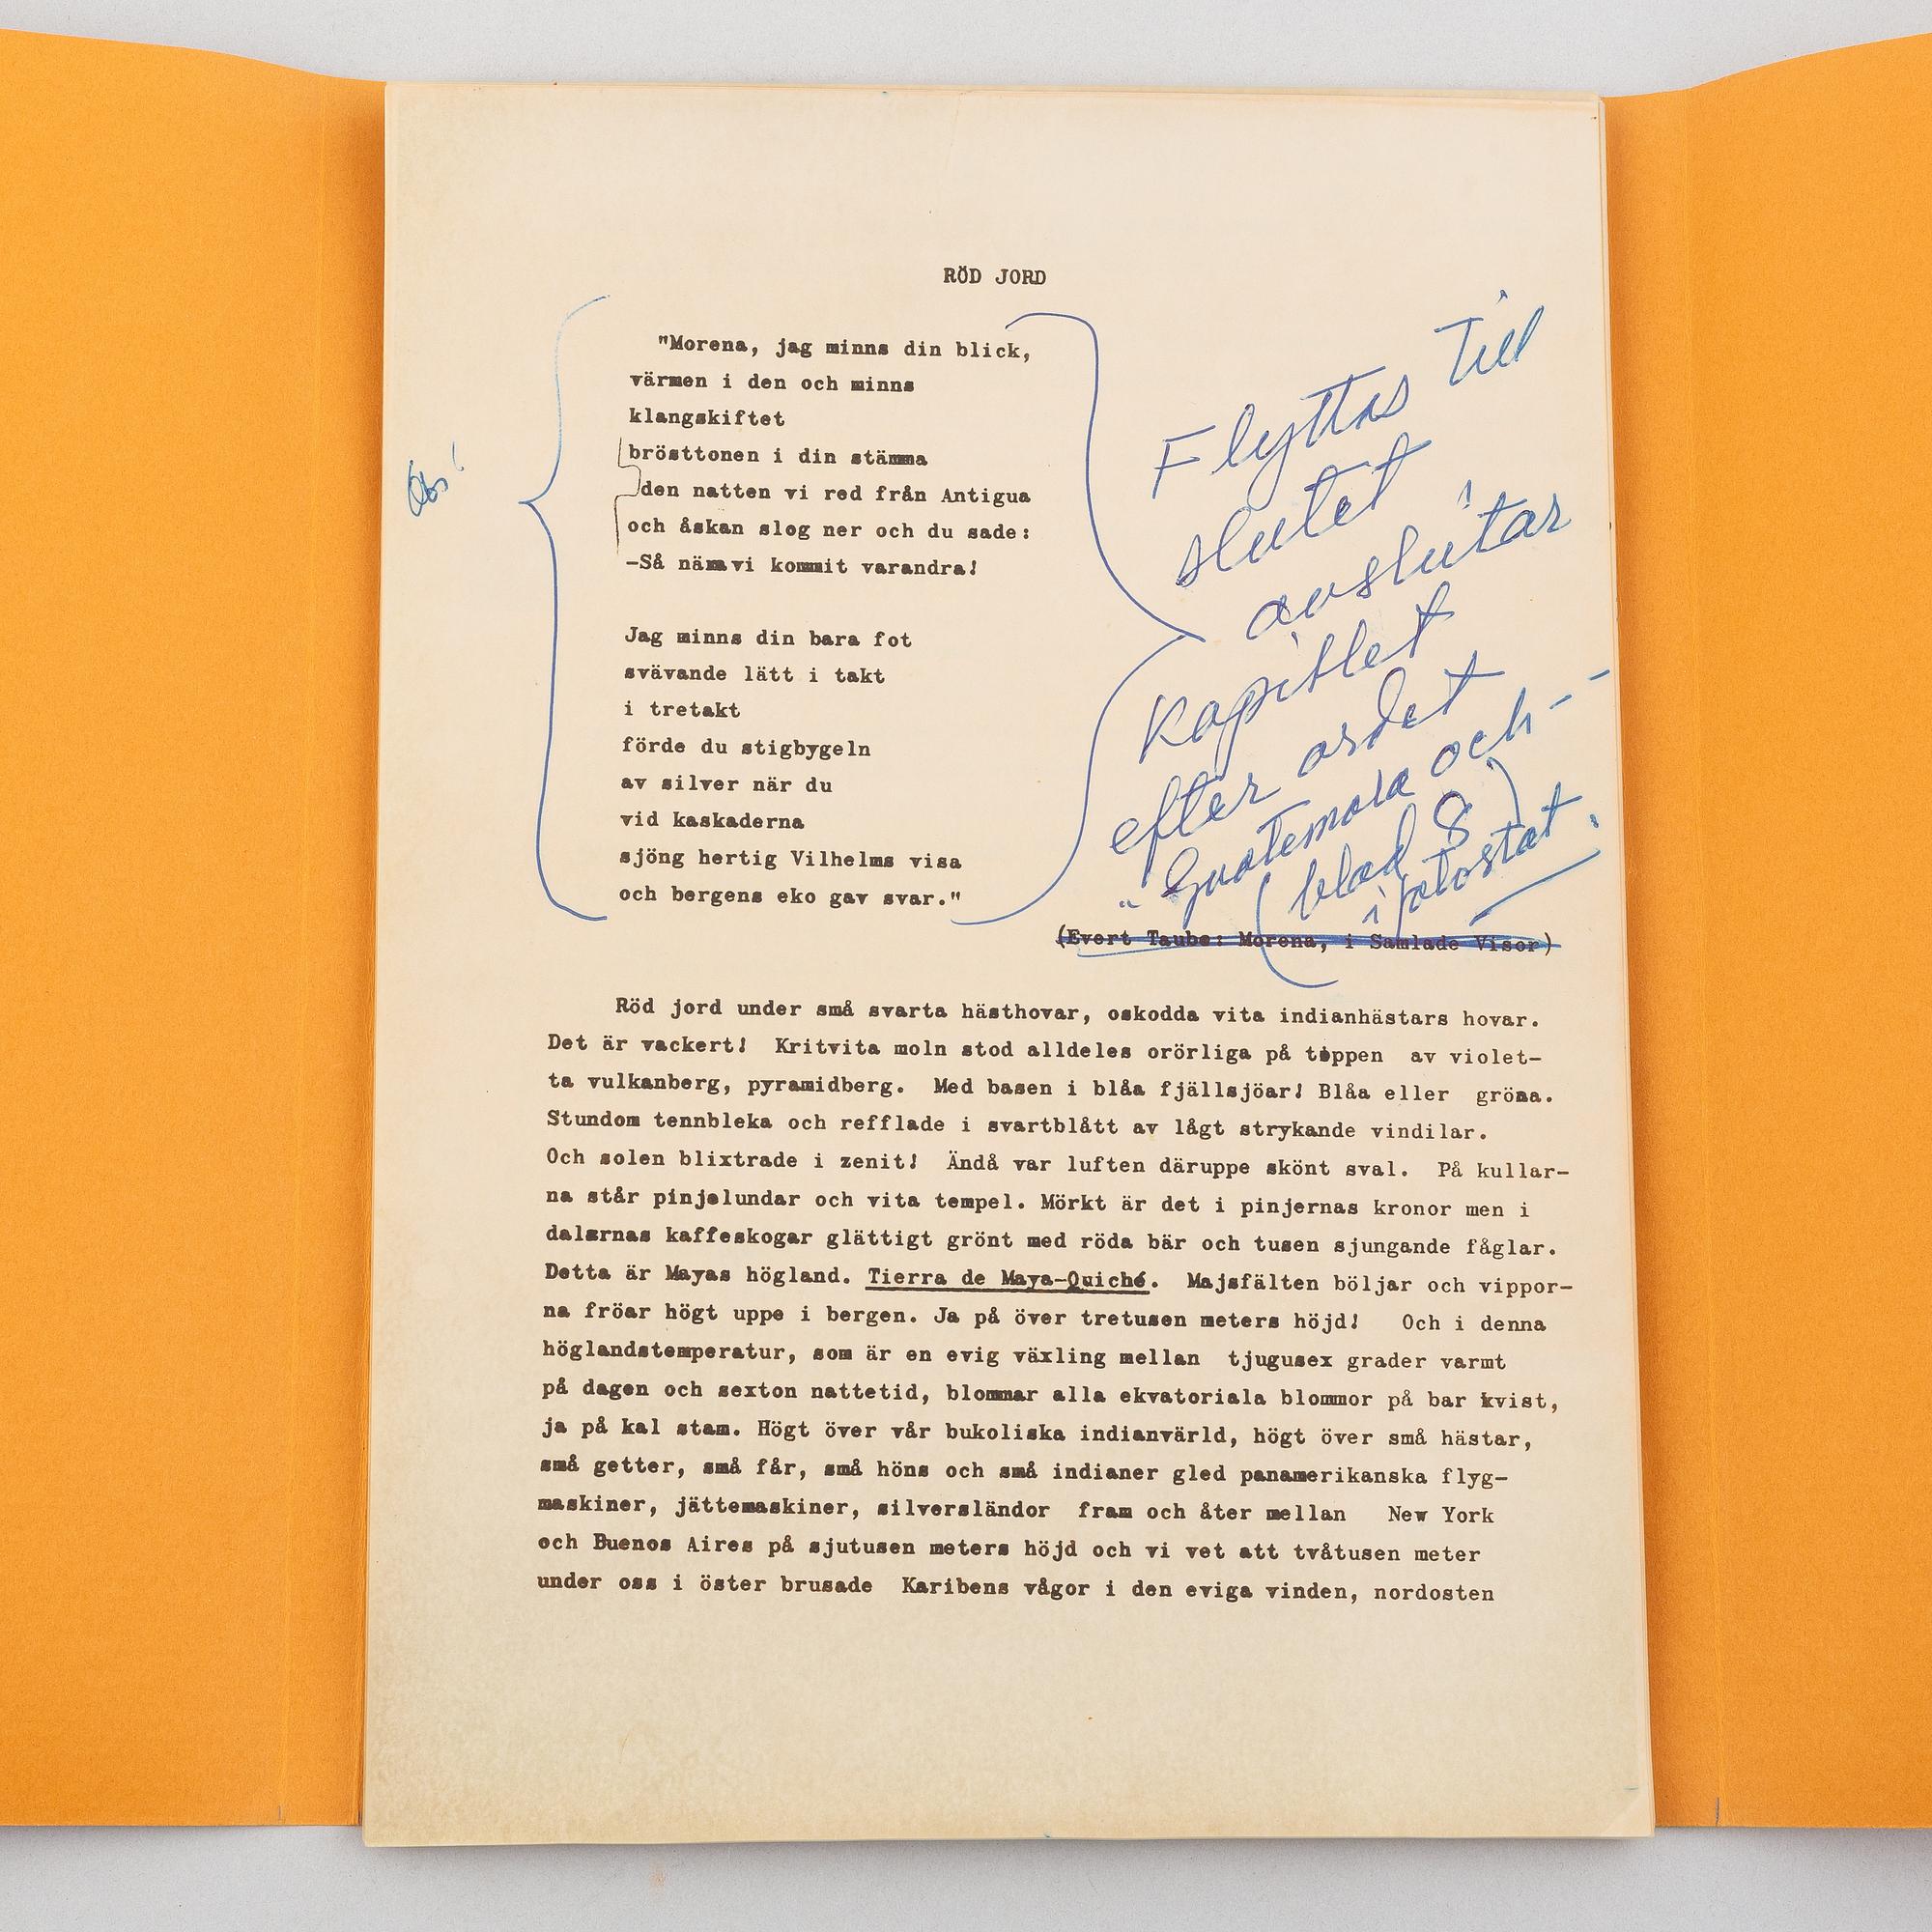 RÖD JORD
Obs!
"Morena, jag minns din blick,
värmen i den och minns
klangskiftet
brösttonen i din stämma
den natten vi red från Antigua
och åskan slog ner och du sade:
-Så nära vi kommit varandra!
Jag minns din bara fot
svävande lätt i takt
i tretakt
förde du stigbygeln
av silver när du
vid kaskaderna
sjöng hertig Vilhelms visa
och bergens eko gav svar."
Flyttas till
slutet
avslutar
kapitlet
efter ordet
"Guatemala och --
(blad 8)
i fotostat.
(Evert Taube: Morena, i Samlade Visor)
Röd jord under små svarta hästhovar, oskodda vita indianhästars hovar.
Det är vackert! Kritvita moln stod alldeles orörliga på toppen av violet-
ta vulkanberg, pyramidberg. Med basen i blåa fjällsjöar! Blåa eller gröna.
Stundom tennbleka och refflade i svartblått av lågt strykande vindilar.
Och solen blixtrade i zenit! Ändå var luften däruppe skönt sval. På kullar-
na står pinjelundar och vita tempel. Mörkt är det i pinjernas kronor men i
dalarnas kaffeskogar glättigt grönt med röda bär och tusen sjungande fåglar.
Detta är Mayas högland. Tierra de Maya-Quiché. Majsfälten böljar och vippor-
na fröar högt uppe i bergen. Ja på över tretusen meters höjd! Och i denna
höglandstemperatur, som är en evig växling mellan tjugusex grader varmt
på dagen och sexton nattetid, blommar alla ekvatoriala blommor på bar kvist,
ja på kal stam. Högt över vår bukoliska indianvärld, högt över små hästar,
små getter, små får, små höns och små indianer gled panamerikanska flyg-
maskiner, jättemaskiner, silversländor fram och åter mellan New York
och Buenos Aires på sjutusen meters höjd och vi vet att tvåtusen meter
under oss i öster brusade Karibens vågor i den eviga vinden, nordosten